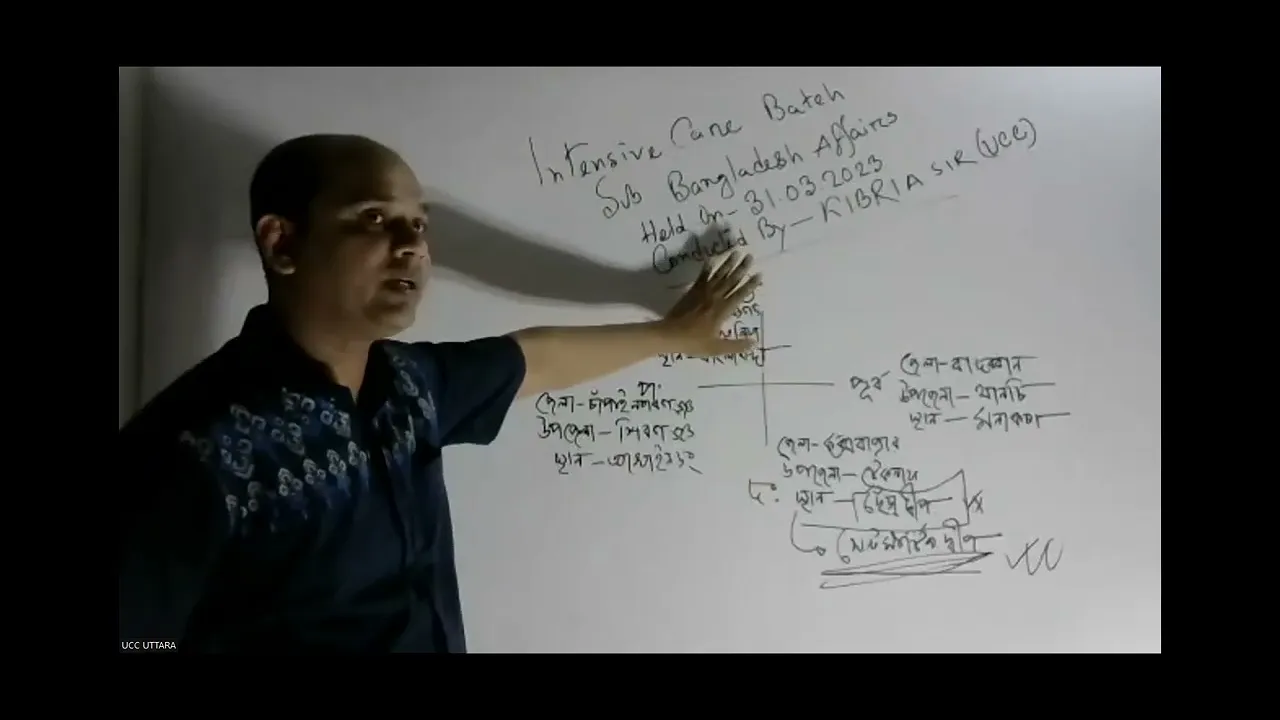 Intensive Care Batch
Sub Bangladesh Affairs
Held On- 31.03.2023
Conducted By - KIBRIA SIR (UCC)
স্থান - বাংলাবান্ধা
প:
জেলা - চাঁপাই নবাবগঞ্জ
উপজেলা - শিবগঞ্জ
স্থান - মনাকষা
পূর্ব
জেলা - বান্দরবান
উপজেলা - থানচি
স্থান -
জেলা - কক্সবাজার
উপজেলা - টেকনাফ
দ: স্থান - ছেঁড়া দ্বীপ
সেন্টমার্টিন দ্বীপ
UCC UTTARA